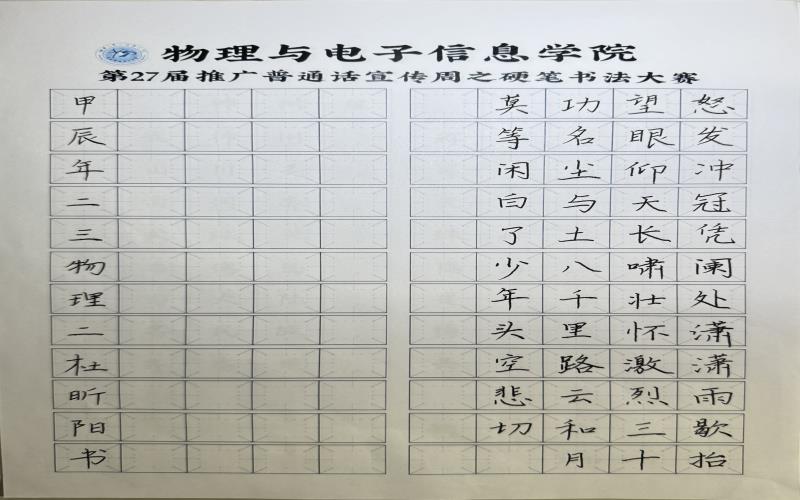 物理与电子信息学院
第27届推广普通话宣传周之硬笔书法大赛
怒发冲冠凭阑处潇潇雨歇抬
望眼仰天长啸壮怀激烈三十
功名尘与土八千里路云和月
莫等闲白了少年头空悲切
甲辰年二三物理二杜昕阳书